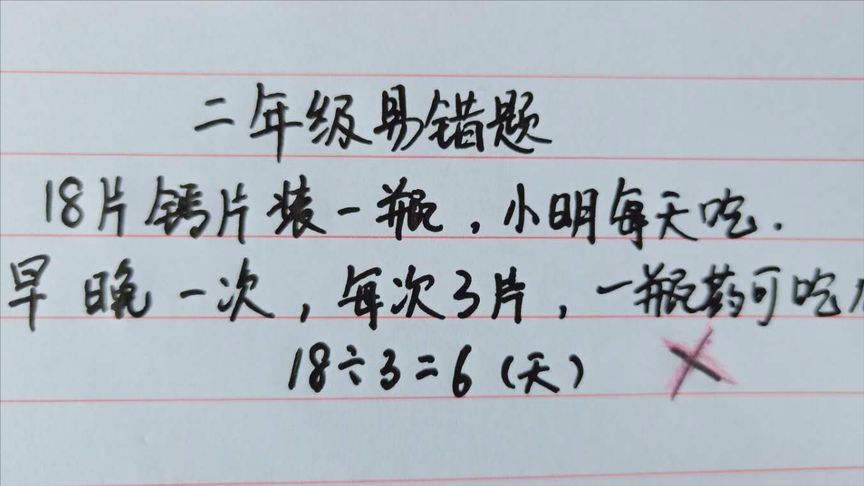 二年级易错题
18片钙片装一瓶，小明每天吃.
早晚一次，每次3片，一瓶药可吃
18÷3=6（天）